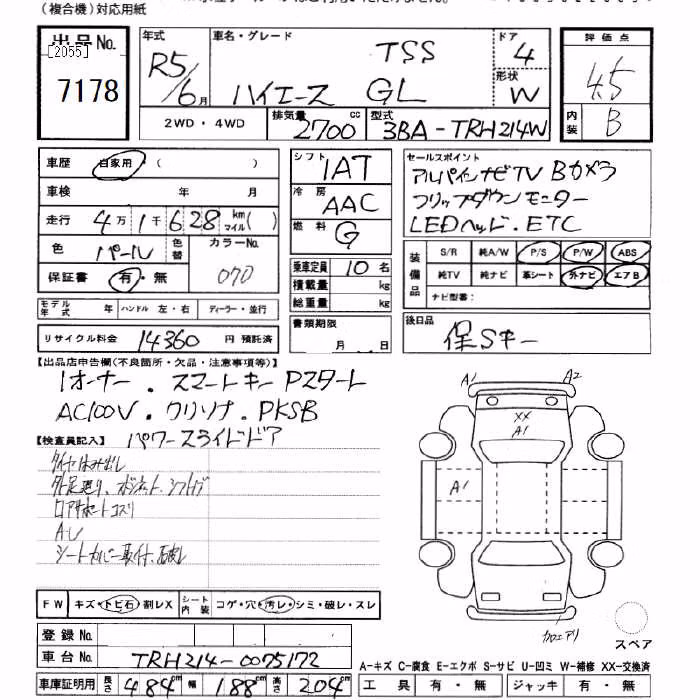 (複合機)対応用紙
出品No.
[2055]
7178
年式 R5/6月
車名・グレード TSS
ハイエース GL
ドア 4
形状 W
評価点 4.5
内装 B
2WD・4WD
排気量 2700 cc
型式 3BA-TRH214W
車歴 自家用 ( )
車検 年 月
走行 4万1千628 km マイル( )
色 パール 色替 カラーNo. 070
保証書 有・無
モデル年式 年 ハンドル 左・右 ディーラー・並行
リサイクル料金 14360 円 預託済
シフト IAT
冷房 AAC
燃料 G
乗車定員 10 名
積載量 kg
総重量 kg
書類期限 月 日
セールスポイント
アルパインナビTV Bカメラ
フリップダウンモニター
LEDヘッド.ETC
装備品
S/R 純A/W P/S P/W ABS
純TV 純ナビ 革シート 外ナビ エアB
ナビ型番:
後日品
保Sキー
【出品店申告欄(不良箇所・欠品・注意事項等)】
1オーナー.スマートキーPスタート
AC100V.クリソナ.PKSB
パワースライドドア
【検査員記入】
タイヤはみ出し
シートカバー取付.
FW キズ・トビ石・割レX
シート内装 コゲ・穴・汚レ・シミ・破レ・スレ
登録No.
車台No. TRH214-0075172
車庫証明用 長さ 484cm 幅 188cm 高さ 204cm
A1 A2
XX
A1
A1
カロエアリ
スペア
A-キズ C-腐食 E-エクボ S-サビ U-凹ミ W-補修 XX-交換済
工具 有・無 ジャッキ 有・無